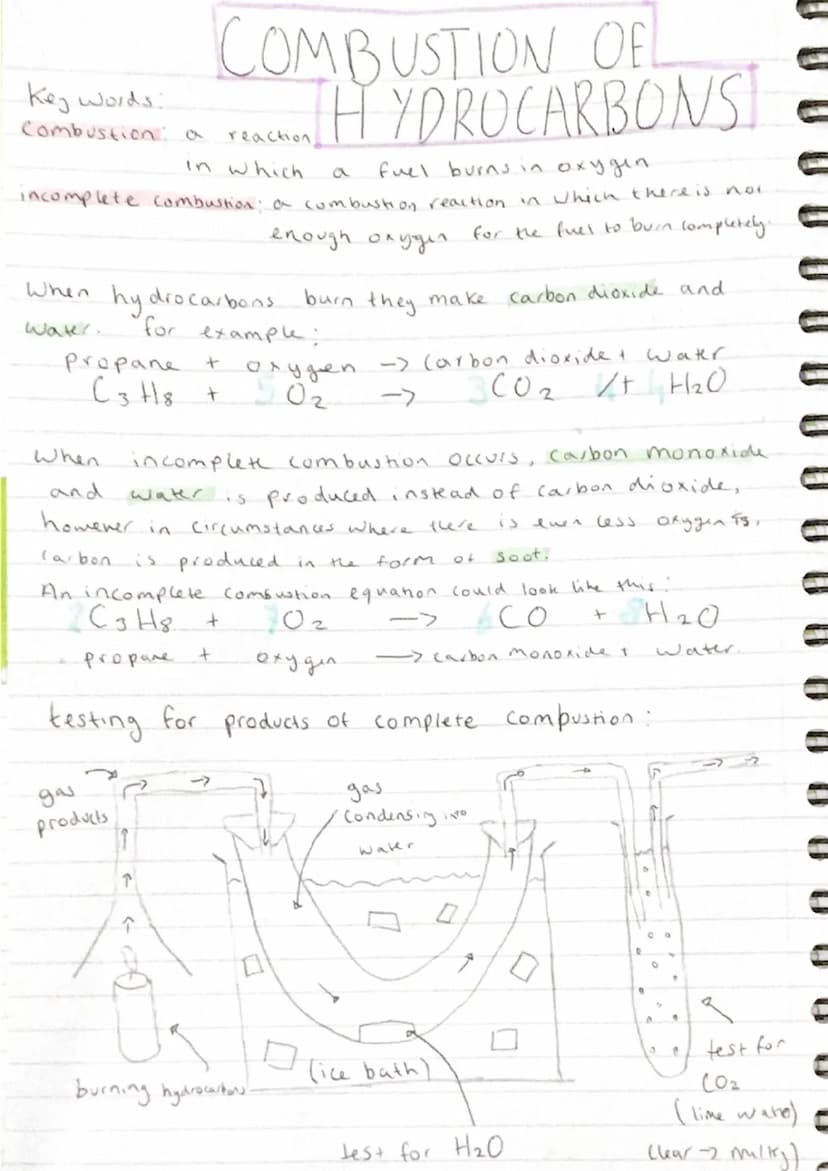 COMBUSTION OF
HYDROCARBONS
Key words:
Combustion: a reaction
in which a fuel burns in oxygen
incomplete combustion: a combustion reaction in which there is not
enough oxygen for the fuel to burn completely.
When hydrocarbons burn they make carbon dioxide and
water. for example:
propane + oxygen -> carbon dioxide + water
C3H8 + 5 O2 -> 3 CO2 /+ 4 H2O
When incomplete combustion occurs, carbon monoxide
and water is produced instead of carbon dioxide,
however in circumstances where there is even less oxygen
carbon is produced in the form of soot.
An incomplete combustion equation could look like this:
2 C3H8 + 7 O2 -> 6 CO + 8 H2O
propane + oxygen -> carbon monoxide + water.
testing for products of complete compustion:
gas
products
gas
condensing into
water
burning hydrocarbons
(ice bath)
test for H2O
test for
CO2
(lime water)
(clear -> milky)